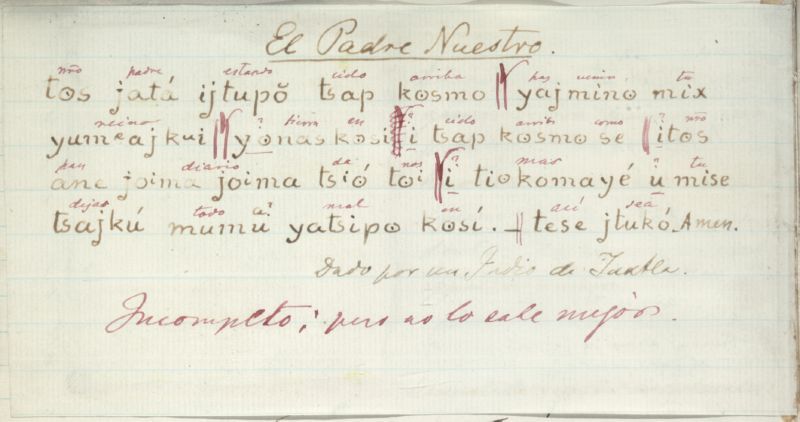 El Padre Nuestro.
nrō padre estando cielo arriba haz venir tu
tos jatá ijtupŏ tsap kosmo yajmino mix
reino ? tierra en ? cielo arriba como ? nrō
yumeajkui y onaskosi i tsap kosmo se itos
pan diario da nos ? mas ? tu
ane joima joima tsió toi i tiokomayé u mise
dejas todo ? mal en así sea
tsajkú mumu ü yatsipo kosí. — tese jtukó. Amen.
Dado por un Indio de Tuxtla.
Incompleto; pero no lo sabe mejor.